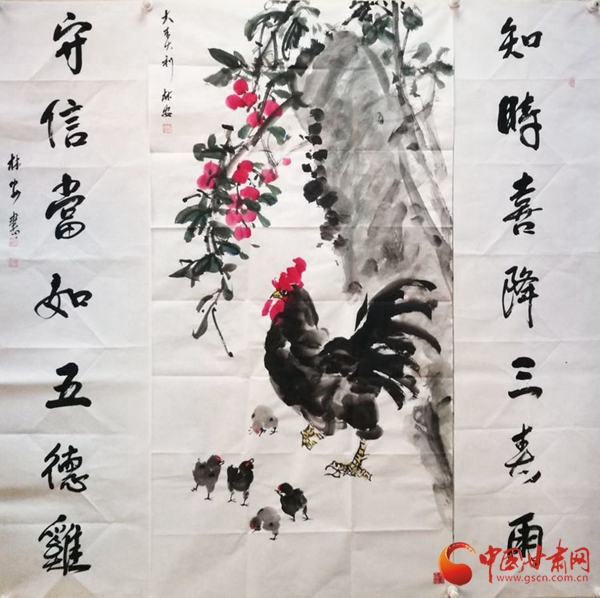 知時喜降三春雨
大吉大利 林安
守信當如五德雞
林安書
中国甘肃网
www.gscn.com.cn